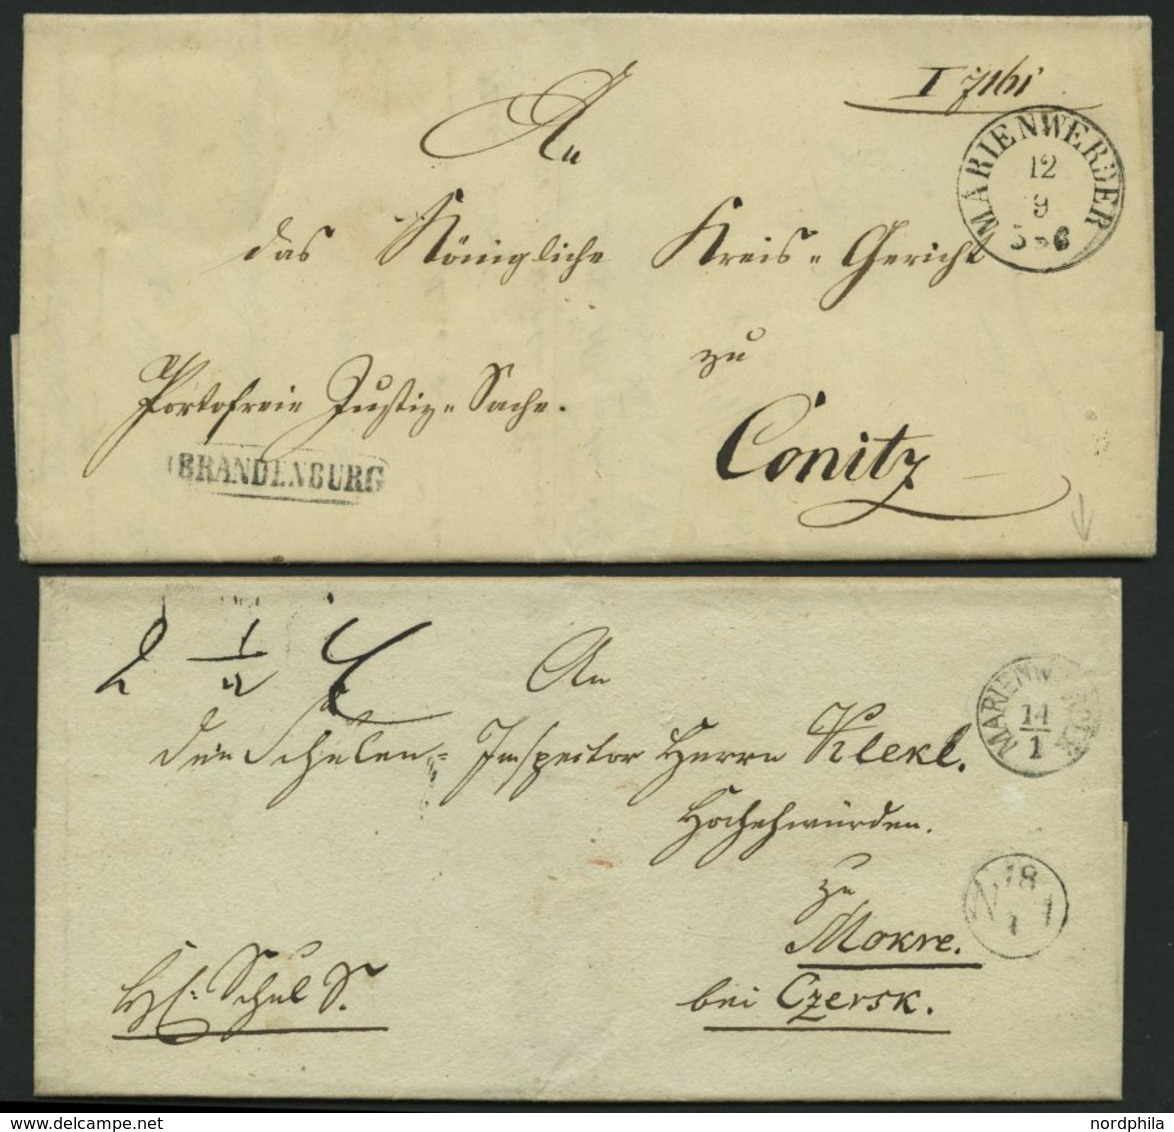 I 7161
An
MARIENWERDER
12
9
5-6
das Königliche Kreis-Gericht
zu
Portofreie Justiz-Sache.
Conitz
BRANDENBURG
2 1/2
An
MARIENWERDER
14
1
den Schulen-Inspector Herrn Klekl.
Hochehrwürden.
zu
18
1
Mokre.
Schul S.
bei Czersk.
delcampe.net
nordphila